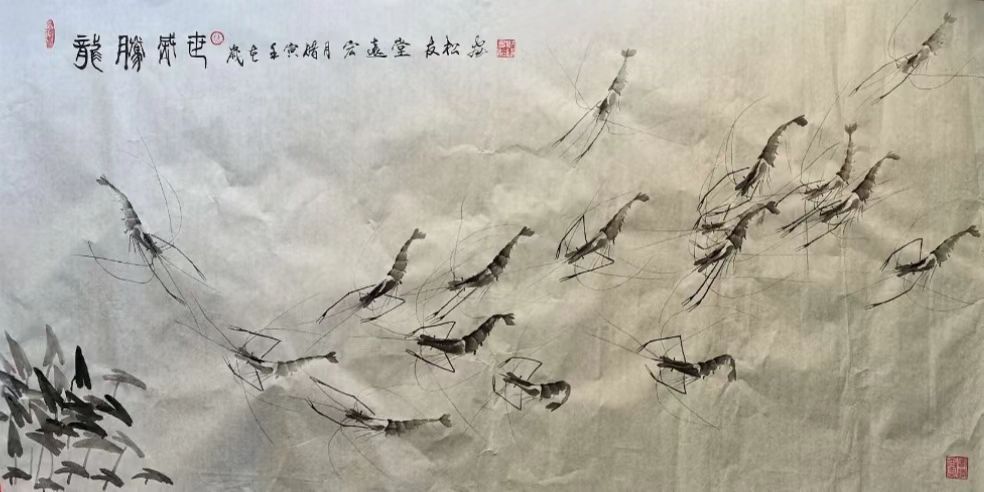 龍騰盛世 歲在壬寅腊月宏遠堂友松